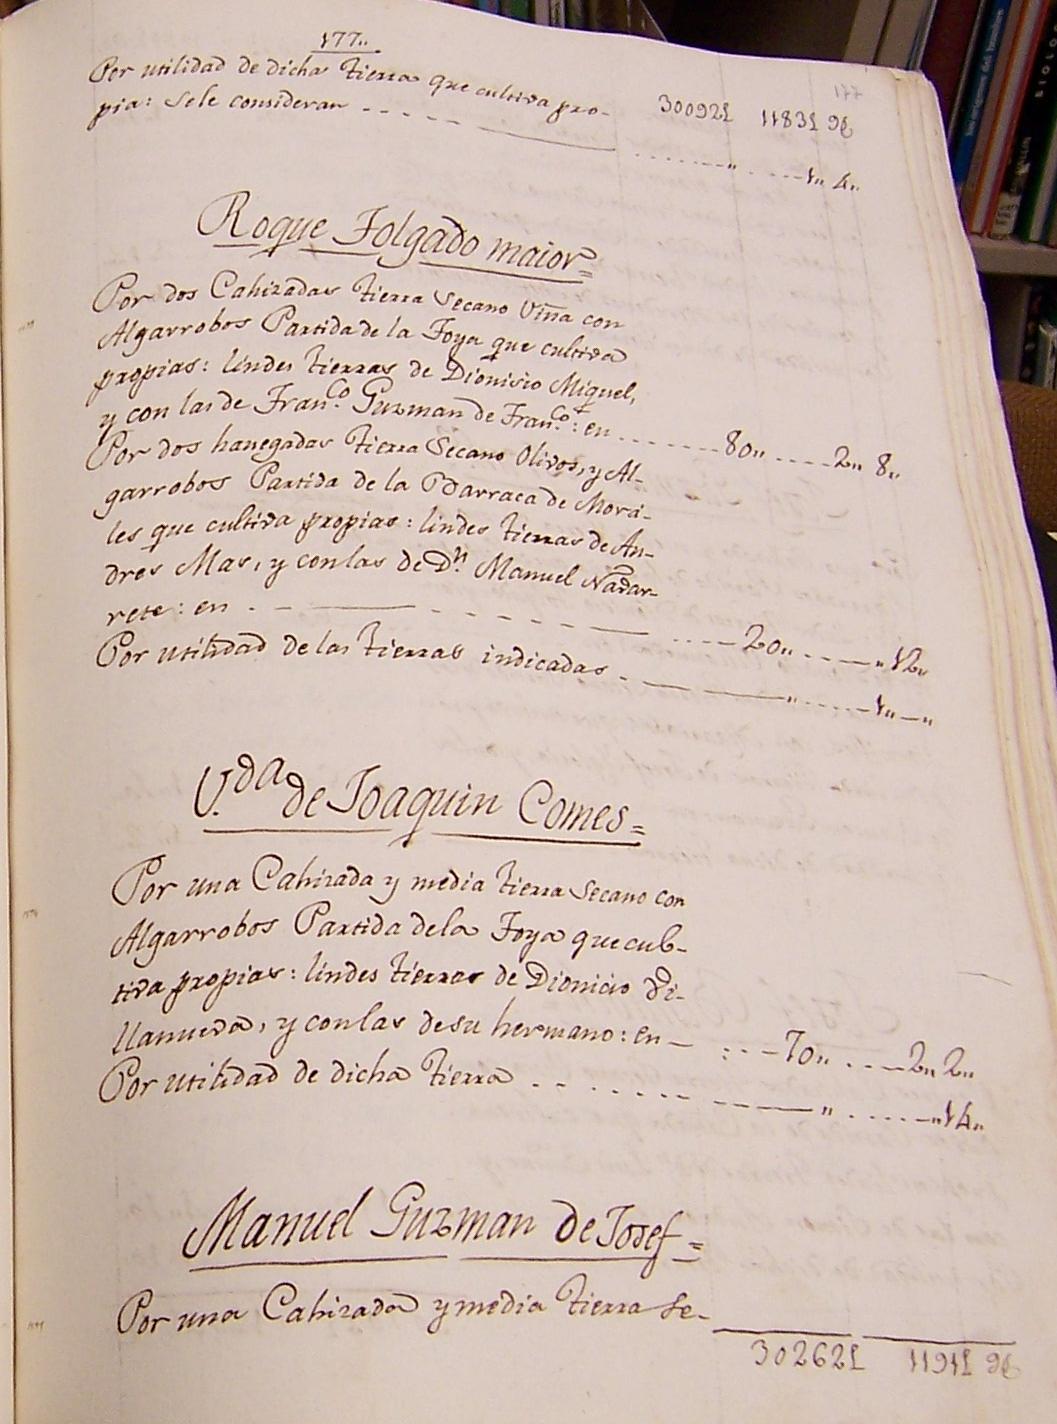 177..
177
Por utilidad de dicha tierra que cultiva pro- 300921 11831 96
pia: Sele consideran - - - - - ——— ......—„ . ...—1„ 4„
Roque Folgado maior=
Por dos Cahizadas tierra Secano Viña con
Algarrobos Partida de la Foya que cultiva
propias: lindes tierras de Dionisio Miquel,
y con las de Fran.co Guzman de Fran.co: en ......—80„ ....—2„ 8„
Por dos hanegadas tierra Secano Olivos, y Al-
garrobos Partida de la Barraca de Mora-
les que cultiva propias: lindes tierras de An-
dres Mas, y con las de Dn. Manuel Nabar-
rete: en . — ——— - - - — — ....—20„ ...—„ 12„
Por utilidad de las tierras indicadas . — ——— „ .....—1„—„
V.da de Joaquin Comes=
Por una Cahizada y media tierra Secano con
Algarrobos Partida dela Foya que cul-
tiva propias: lindes tierras de Dionicio Vi-
llanueva, y con las de su hermano: en— :.-—70„ ...—2„ 2„
Por utilidad de dicha tierra - - . . . - - - — ——„ .....—„14„
Manuel Guzman de Josef=
Por una Cahizada y media tierra Se-
302621 11911 96